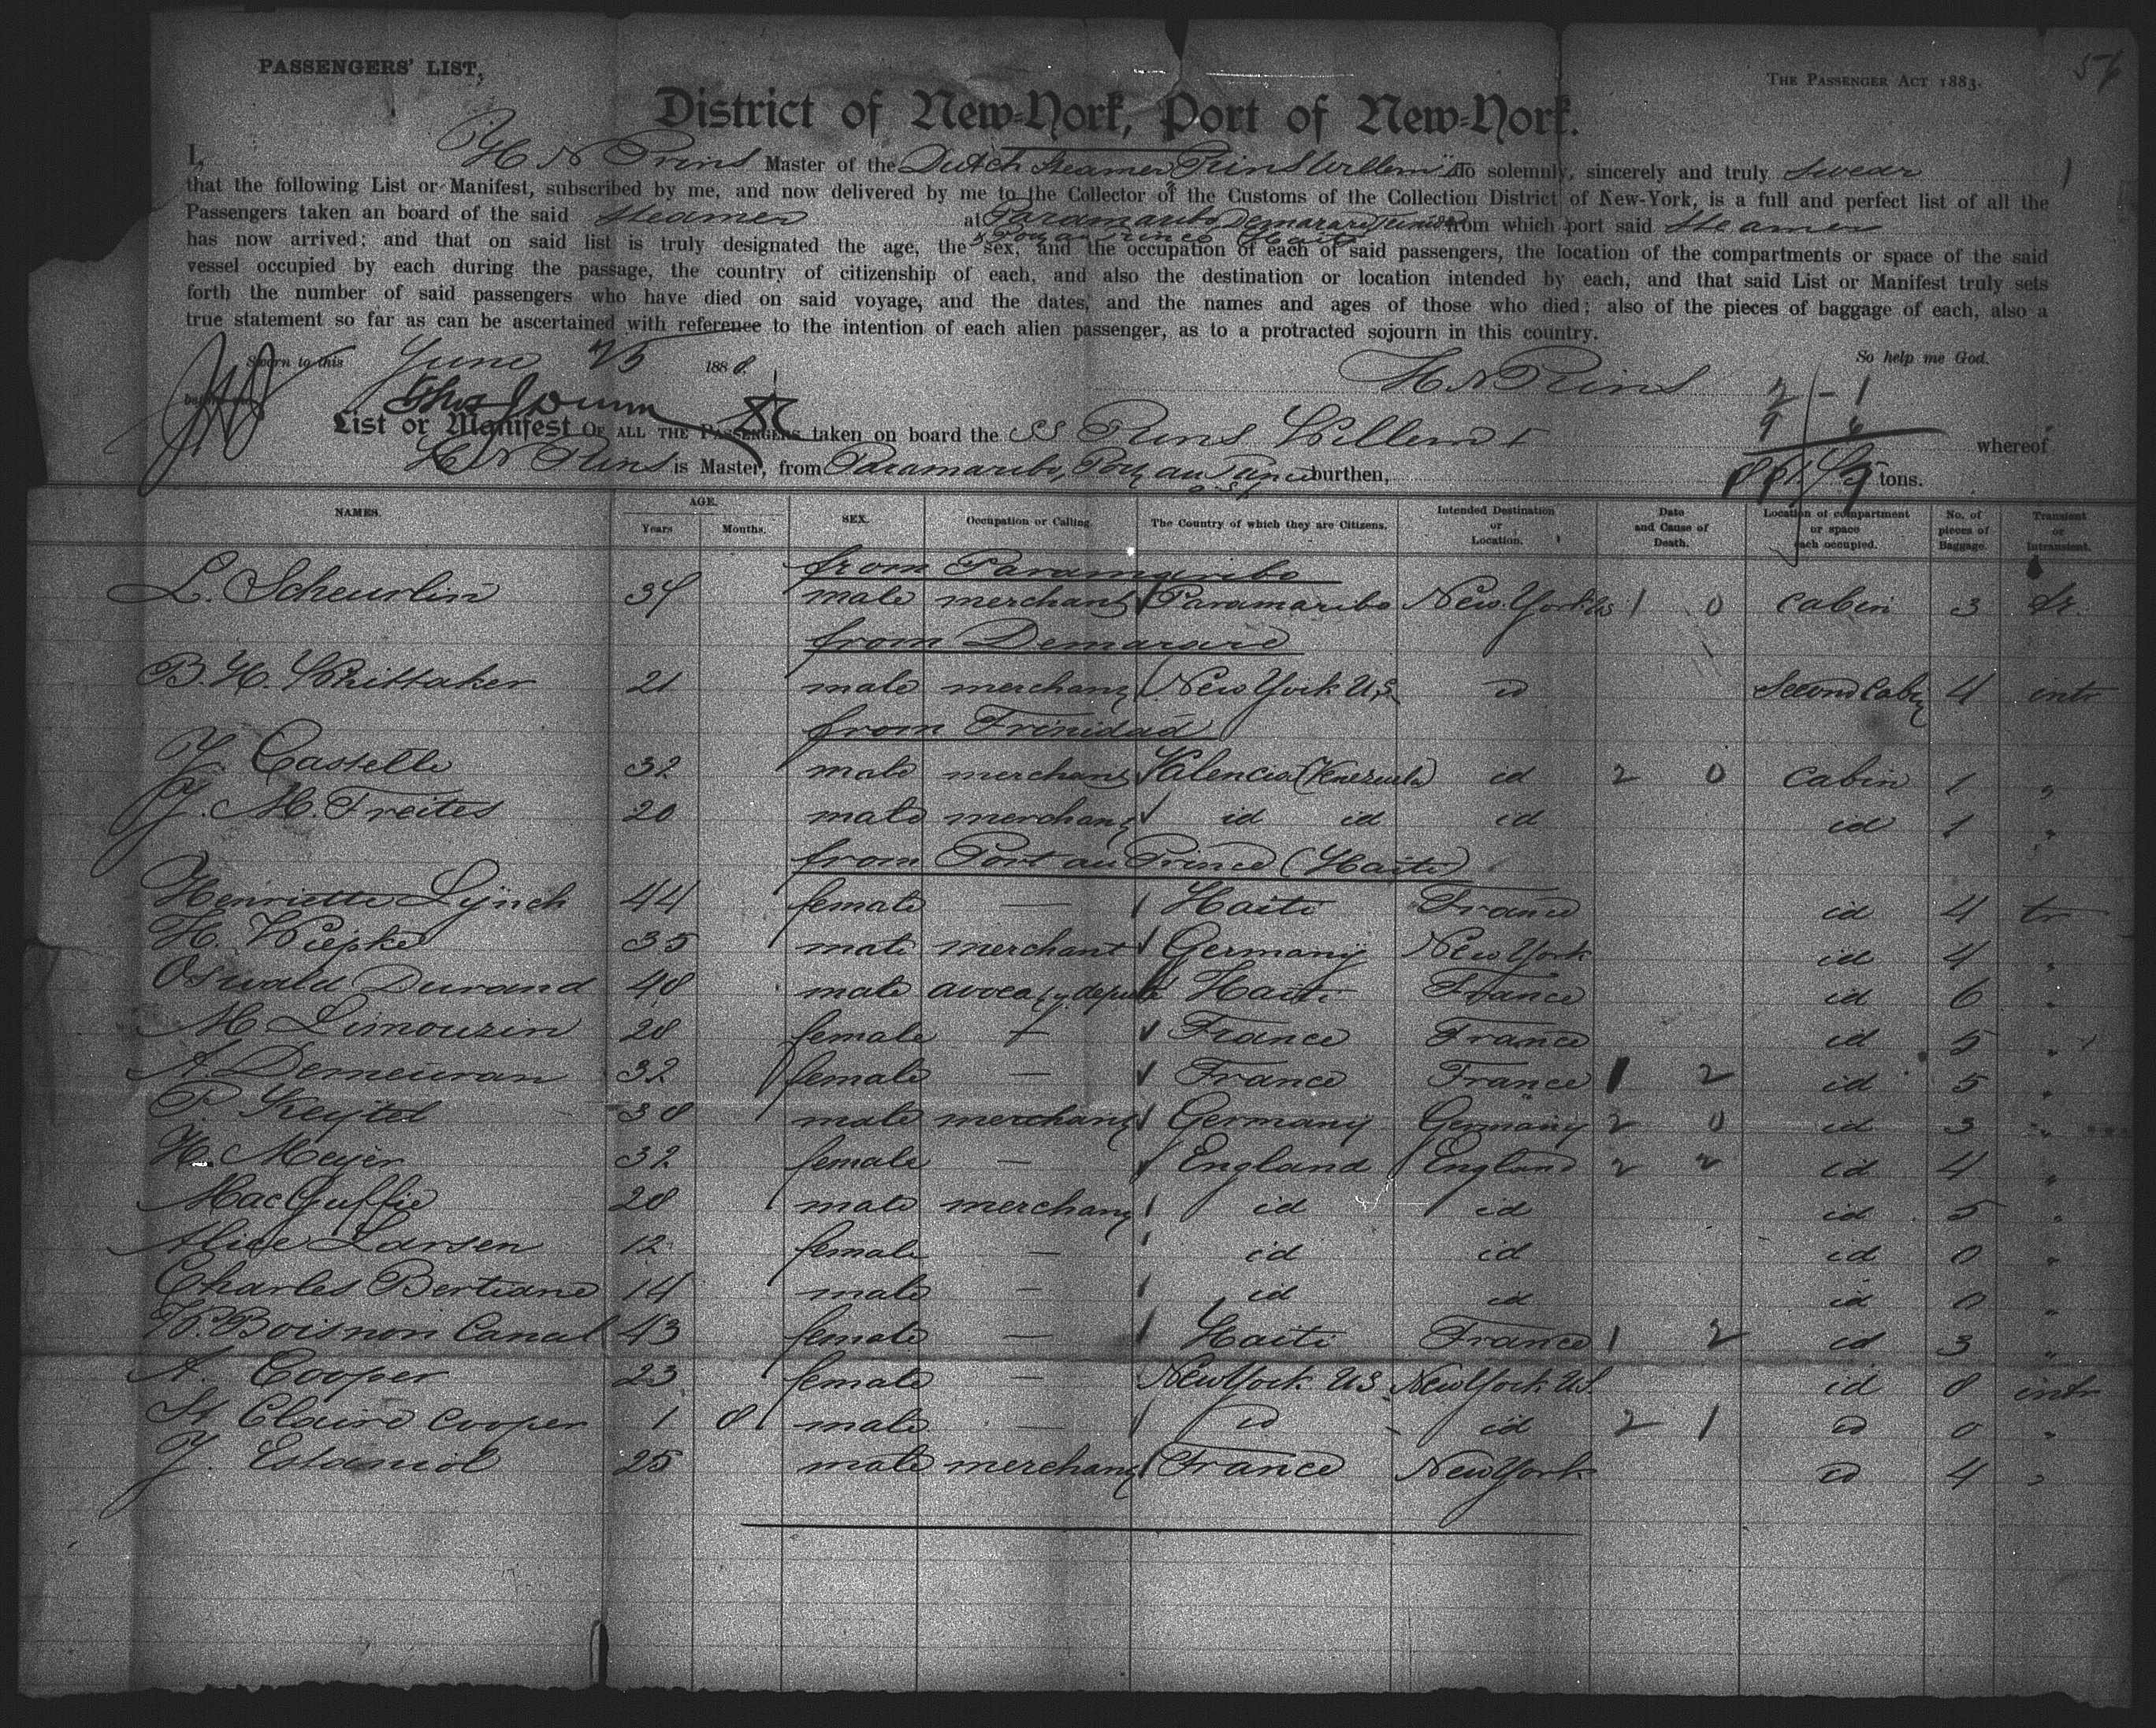 PASSENGERS' LIST,
THE PASSENGER ACT 1883.
District of New-York, Port of New-York.
I, H N Prins Master of the Dutch Steamer Prins Willem I do solemnly, sincerely and truly swear
that the following List or Manifest, subscribed by me, and now delivered by me to the Collector of the Customs of the Collection District of New-York, is a full and perfect list of all the
Passengers taken an board of the said steamer at Paramaribo, Demarare, Trinidad from which port said Steamer
Port au Prince Haiti
has now arrived; and that on said list is truly designated the age, the sex, and the occupation of each of said passengers, the location of the compartments or space of the said
vessel occupied by each during the passage, the country of citizenship of each, and also the destination or location intended by each, and that said List or Manifest truly sets
forth the number of said passengers who have died on said voyage, and the dates, and the names and ages of those who died; also of the pieces of baggage of each, also a
true statement so far as can be ascertained with reference to the intention of each alien passenger, as to a protracted sojourn in this country.
Sworn to this June 25 1888. So help me God.
H N Prins
List or Manifest OF ALL THE PASSENGERS taken on board the SS Prins Willem I whereof
H N Prins is Master, from Paramaribo, Port au Prince burthen, tons.
NAMES. AGE. Years Months. SEX. Occupation or Calling. The Country of which they are Citizens. Intended Destination or Location. Date and Cause of Death. Location of compartment or space each occupied. No. of pieces of Baggage. Transient or Intransient.
from Paramaribo
L. Scheurlin 34 male merchant Paramaribo New York US 1 0 cabin 3 tr.
from Demarare
B. H. Whittaker 21 male merchant New York U.S. id Second Cabin 4 intr
from Trinidad
Y. Castello 32 male merchant Valencia (Venezuela) id 2 0 cabin 1 "
J. M. Freites 20 male merchant id id id id 1 "
from Port au Prince (Haiti)
Henriette Lynch 44 female — Haiti France id 4 tr
H. Wiepke 35 male merchant Germany New York id 4 "
Oswald Durand 48 male avocat, député Haiti France id 6 "
M Limouzin 28 female — France France id 5 "
A. Demeuran 32 female — France France 1 2 id 5 "
P. Keytel 38 male merchant Germany Germany 2 0 id 3 "
H. Meyer 32 female — England England 2 2 id 4 "
Mac Guffie 28 male merchant id id id 5 "
Alice Larsen 12 female — id id id 0 "
Charles Bertrand 14 male — id id id 0 "
W. Boisnon Canal 43 female — Haiti France 1 2 id 3 "
A. Cooper 23 female — New York US New York U.S. id 8 intr
St Claire Cooper 1 8 male — id id 2 1 id 0 "
J. Estaniol 25 male merchant France New York id 4 "